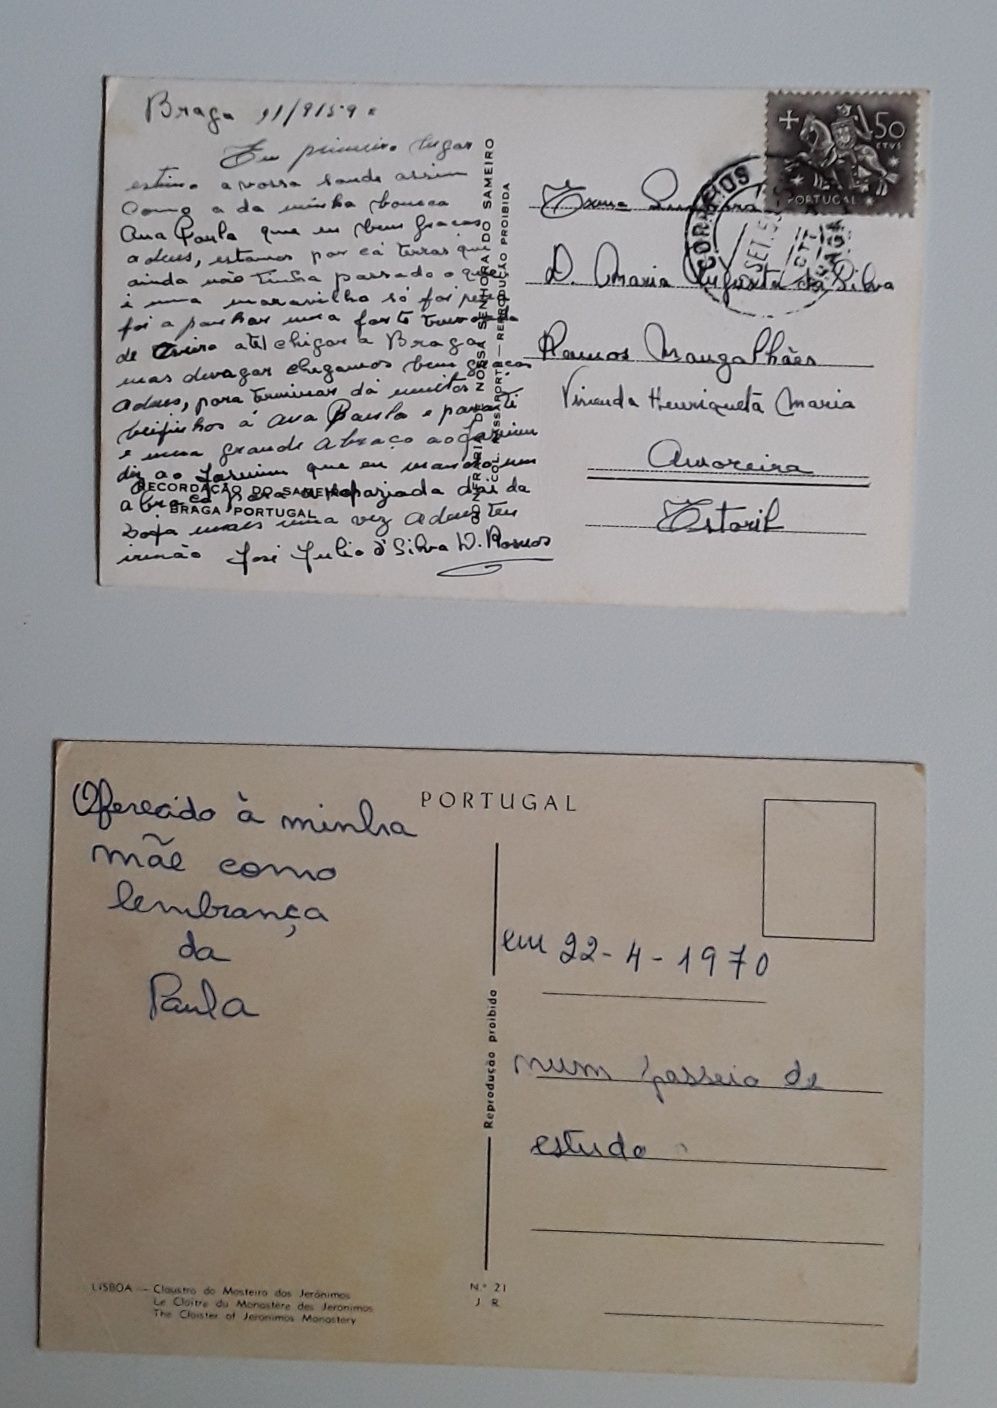 Braga 11/9/59
Em primeiro lugar
estimo a vossa saude assim
como a da minha boneca
Ana Paula que eu bem graças
a deus, estamos por cá terras que
ainda não tinha passado o que
é uma maravilha só foi pena
foi a panhar uma forte
de Aveiro até chigar a Braga
mas devagar chegamos bem graças
a deus, para terminar dá muitos
beijinhos á Ana Paula e para ti
e uma grande abraço ao Jasmim
diz ao Jasmim que eu mando um
abraço para a rapaziada daí da
mais uma vez Adeus teu
irmão José Julio d'Silva D. Ramos
RECORDAÇÃO DO SAMEIRO
BRAGA PORTUGAL
NOSSA SENHORA DO SAMEIRO
COL. PASSAPORTE — REPRODUÇÃO PROIBIDA
50
CTVS
PORTUGAL
CORREIOS
SET.
CTT
BRAGA
Exma
D. Maria Augusta da Silva
Ramos Mangalhães
Vivenda Henriqueta Maria
Amoreira
Estoril
PORTUGAL
Oferecido à minha
mãe como
lembrança
da
Paula
em 22-4-1970
num passeio de
estudo
Reprodução proibida
LISBOA — Claustro do Mosteiro dos Jerónimos
Le Cloître du Monastère des Jerónimos
The Cloister of Jeronimos Monastery
N.º 21
J. R.